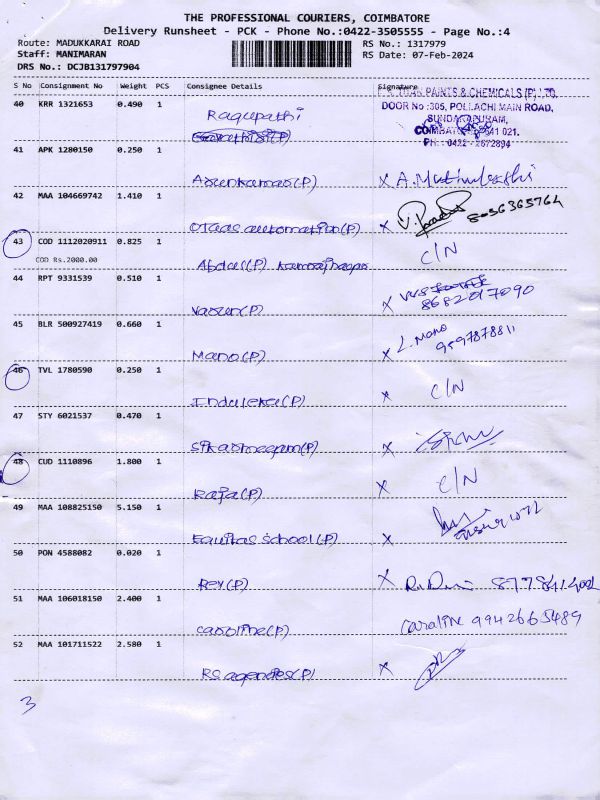 THE PROFESSIONAL COURIERS, COIMBATORE
Delivery Runsheet - PCK - Phone No.:0422-3505555 - Page No.:4
Route: MADUKKARAI ROAD RS No.: 1317979
Staff: MANIMARAN RS Date: 07-Feb-2024
DRS No.: DCJB131797904
S No Consignment No Weight PCS Consignee Details Signature
PAINTS & CHEMICALS (P) LTD.
40 KRR 1321653 0.490 1 Ragupathi DOOR No :305, POLLACHI MAIN ROAD,
SUNDARAPURAM,
COIMBATORE 641 021.
PH : 0422 - 2672894
41 APK 1280150 0.250 1
Arunkumar(P) X A. Muthulakshi
42 MAA 104669742 1.410 1
Otaas automation(P) X 8056365764
43 COD 1112020911 0.825 1 C/N
COD Rs.2000.00 Abdul(P) kamarajnagar
44 RPT 9331539 0.510 1
Varun(P) X 8682017090
45 BLR 500927419 0.660 1
Mano(P) X L. Mano 9597878811
46 TVL 1780590 0.250 1
Induleka(P) X C/N
47 STY 6021537 0.470 1
(P) X
48 CUD 1110896 1.800 1
Raja(P) X C/N
49 MAA 108825150 5.150 1
Equitas school(P) X
50 PON 4588082 0.020 1
Rey(P) X
51 MAA 106018150 2.400 1
caroline(P) Caraline 9942665489
52 MAA 101711522 2.580 1
RS agencies(P) X
3